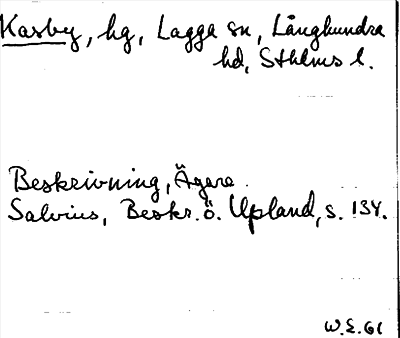 Kasby, hg, Lagga sn, Långhundra
hd, Sthlms l.
Beskrivning, Ägare.
Salvius, Beskr. ö. Upland, s. 134.
W.E. 61